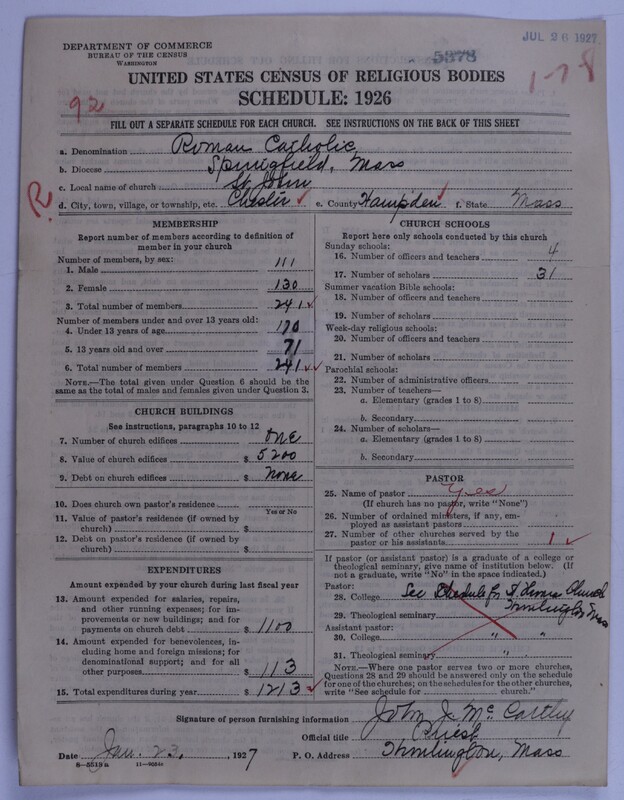 JUL 26 1927
DEPARTMENT OF COMMERCE
BUREAU OF THE CENSUS
WASHINGTON
5378
1-7-8
UNITED STATES CENSUS OF RELIGIOUS BODIES
92
SCHEDULE: 1926
FILL OUT A SEPARATE SCHEDULE FOR EACH CHURCH. SEE INSTRUCTIONS ON THE BACK OF THIS SHEET
a. Denomination Roman Catholic
b. Diocese Springfield, Mass
c. Local name of church St John
R
d. City, town, village, or township, etc. Chester e. County Hampden f. State Mass
MEMBERSHIP
Report number of members according to definition of
member in your church
Number of members, by sex:
1. Male 111
2. Female 130
3. Total number of members 241
Number of members under and over 13 years old:
4. Under 13 years of age 170
5. 13 years old and over 71
6. Total number of members 241
NOTE.—The total given under Question 6 should be
the same as the total of males and females given under Question 3.
CHURCH BUILDINGS
See instructions, paragraphs 10 to 12
7. Number of church edifices one
8. Value of church edifices $ 5200
9. Debt on church edifices $ none
10. Does church own pastor's residence
Yes or No
11. Value of pastor's residence (if owned by
church) $
12. Debt on pastor's residence (if owned by
church) $
EXPENDITURES
Amount expended by your church during last fiscal year
13. Amount expended for salaries, repairs,
and other running expenses; for im-
provements or new buildings; and for
payments on church debt $ 1100
14. Amount expended for benevolences, in-
cluding home and foreign missions; for
denominational support; and for all
other purposes $ 113
15. Total expenditures during year $ 1213
CHURCH SCHOOLS
Report here only schools conducted by this church
Sunday schools:
16. Number of officers and teachers 4
17. Number of scholars 31
Summer vacation Bible schools:
18. Number of officers and teachers
19. Number of scholars
Week-day religious schools:
20. Number of officers and teachers
21. Number of scholars
Parochial schools:
22. Number of administrative officers
23. Number of teachers—
a. Elementary (grades 1 to 8)
b. Secondary
24. Number of scholars—
a. Elementary (grades 1 to 8)
b. Secondary
PASTOR
25. Name of pastor yes
(If church has no pastor, write "None")
26. Number of ordained ministers, if any, em-
ployed as assistant pastors
27. Number of other churches served by the
pastor or his assistants 1
If pastor (or assistant pastor) is a graduate of a college or
theological seminary, give name of institution below. (If
not a graduate, write "No" in the space indicated.)
Pastor:
28. College See Schedule for St Church
29. Theological seminary Huntington Mass
Assistant pastor:
30. College " "
31. Theological seminary " "
NOTE.—Where one pastor serves two or more churches,
Questions 28 and 29 should be answered only on the schedule
for one of the churches; on the schedules for the other churches,
write "See schedule for church."
Signature of person furnishing information John J. McCarthy
Official title Priest
Date Jan. 23, 1927 P. O. Address Huntington, Mass
8—5519a 11—9064